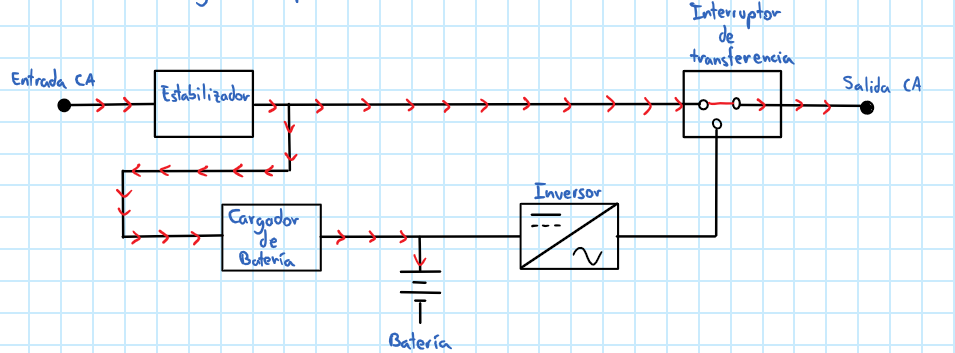 Interruptor
de
transferencia
Entrada CA
Estabilizador
Salida CA
Inversor
Cargador
de
Batería
Batería